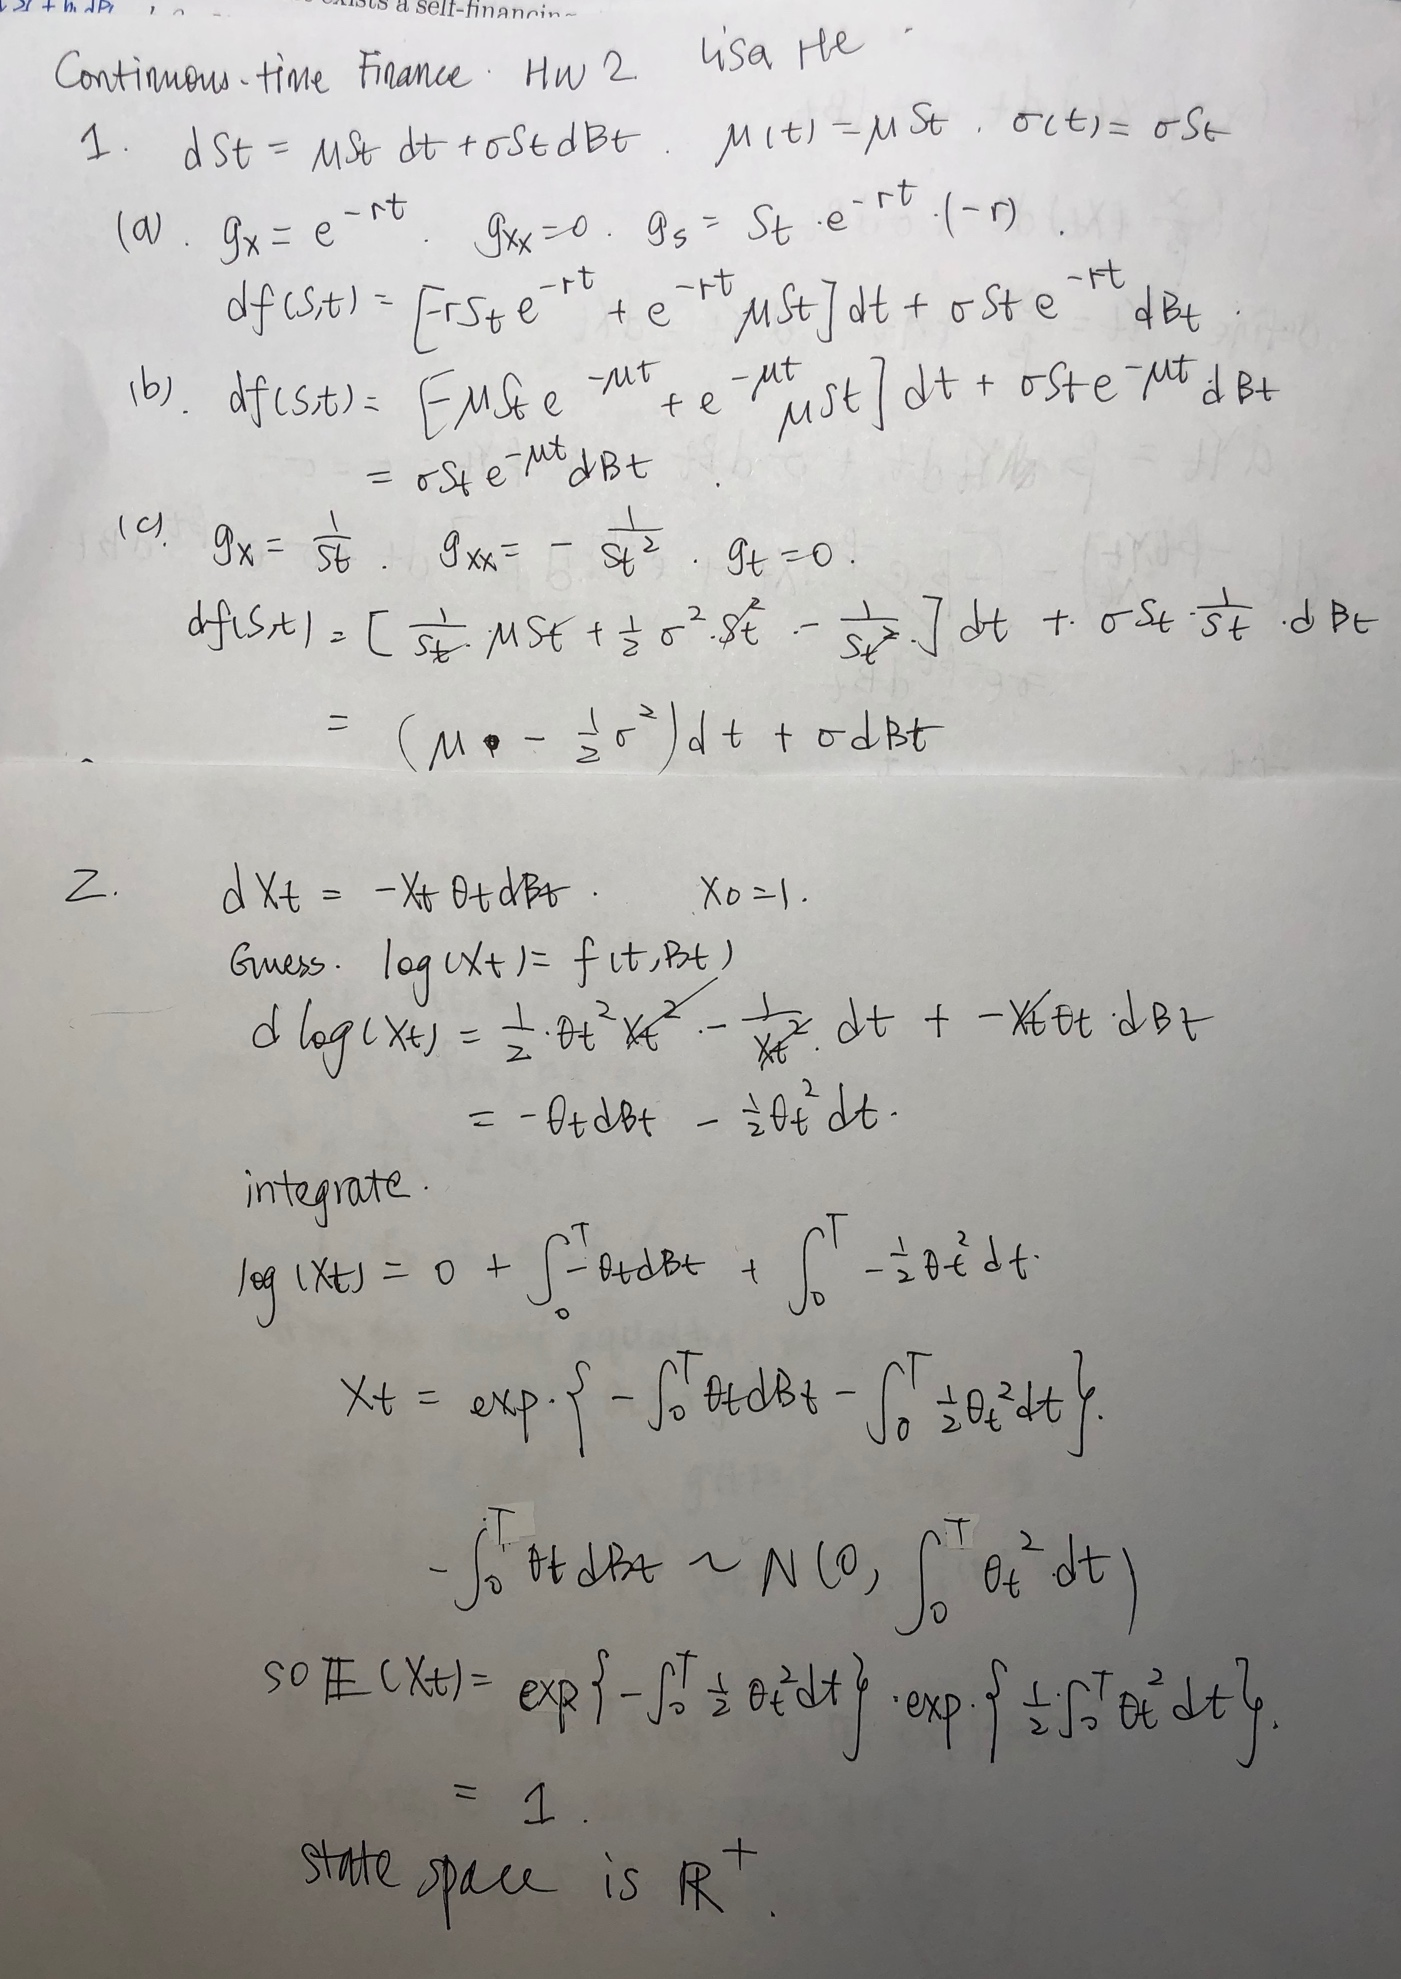 exists a self-financin
Continuous-time Finance. HW 2 Lisa He
1. dSt = μSt dt + σSt dBt. μ(t) = μSt. σ(t) = σSt
(a). gx = e^{-rt}. gxx = 0. gs = St · e^{-rt} · (-r).
df(S,t) = [-rSt e^{-rt} + e^{-rt} μSt] dt + σSt e^{-rt} dBt.
(b). df(S,t) = [-μSt e^{-μt} + e^{-μt} μSt] dt + σSt e^{-μt} dBt
= σSt e^{-μt} dBt.
(c). gx = 1/St. gxx = - 1/St². gt = 0.
df(S,t) = [1/St · μSt + 1/2 σ² · St² · - 1/St² ·] dt + σSt · 1/St · dBt
= (μ - 1/2 σ²) dt + σ dBt
2. dXt = -Xt θt dBt. X0 = 1.
Guess. log(Xt) = f(t, Bt)
d log(Xt) = 1/2 · θt² Xt² · - 1/Xt² · dt + -Xt θt · dBt
= -θt dBt - 1/2 θt² dt.
integrate.
log(Xt) = 0 + ∫₀ᵀ -θt dBt + ∫₀ᵀ - 1/2 θt² dt.
Xt = exp · { -∫₀ᵀ θt dBt - ∫₀ᵀ 1/2 θt² dt }.
-∫₀ᵀ θt dBt ~ N(0, ∫₀ᵀ θt² dt)
so E(Xt) = exp{ -∫₀ᵀ 1/2 θt² dt } · exp · { 1/2 · ∫₀ᵀ θt² dt }.
= 1.
state space is ℝ⁺.